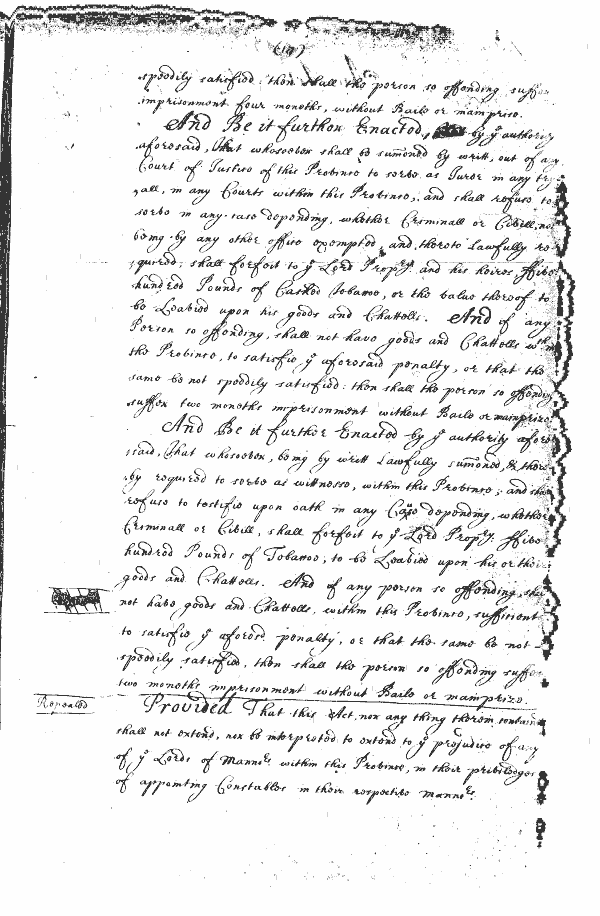 speedily satisfied: then shall the person so offending suffer
imprisonment four moneths, without Baile or mainprise.
And Be it further Enacted, by ye authority
aforesaid, That whosoever shall be sumoned by writt, out of any
Court of Justice of this Province to serve as Juror in any try
all, in any Courts within this Province, and shall refuse to
serve in any case depending, whether Criminall or Civill, not
being by any other office exempted, and thereto Lawfully re
quired; shall forfeit to ye Lord Propry. and his heires, ffive
hundred Pounds of Casked Tobacco, or the value thereof to
be Leavied upon his goods and Chattells. And if any
Person so offending, shall not have goods and Chattells within
the Province, to satisfie ye aforesaid penalty, or that the
same be not speedily satisfied: then shall the person so offending
suffer two moneths imprisonment without Baile or mainprize
And Be it further Enacted by ye authority afore
said, That whosoever, being by writt Lawfully sumoned, & there
by required to serve as wittness, within this Province; and shall
refuse to testifie upon oath in any Case depending, whether
Criminall or Civill, shall forfeit to ye Lord Propry. ffive
hundred Pounds of Tobacco, to be Leavied upon his or their
goods and Chattells. And if any person so offending, shall
not have goods and Chattells, within this Province, sufficient
to satisfie ye aforesd. penalty, or that the same be not
speedily satisfied, then shall the person so offending suffer
two moneths imprisonment without Baile or mainprize.
Repealed
Provided That this Act, nor any thing therein contained
shall not extend, nor be interpreted to extend to ye prejudice of any
of ye Lords of Mannors within this Province, in their priviledges
of appointing Constables in their respective mannors.